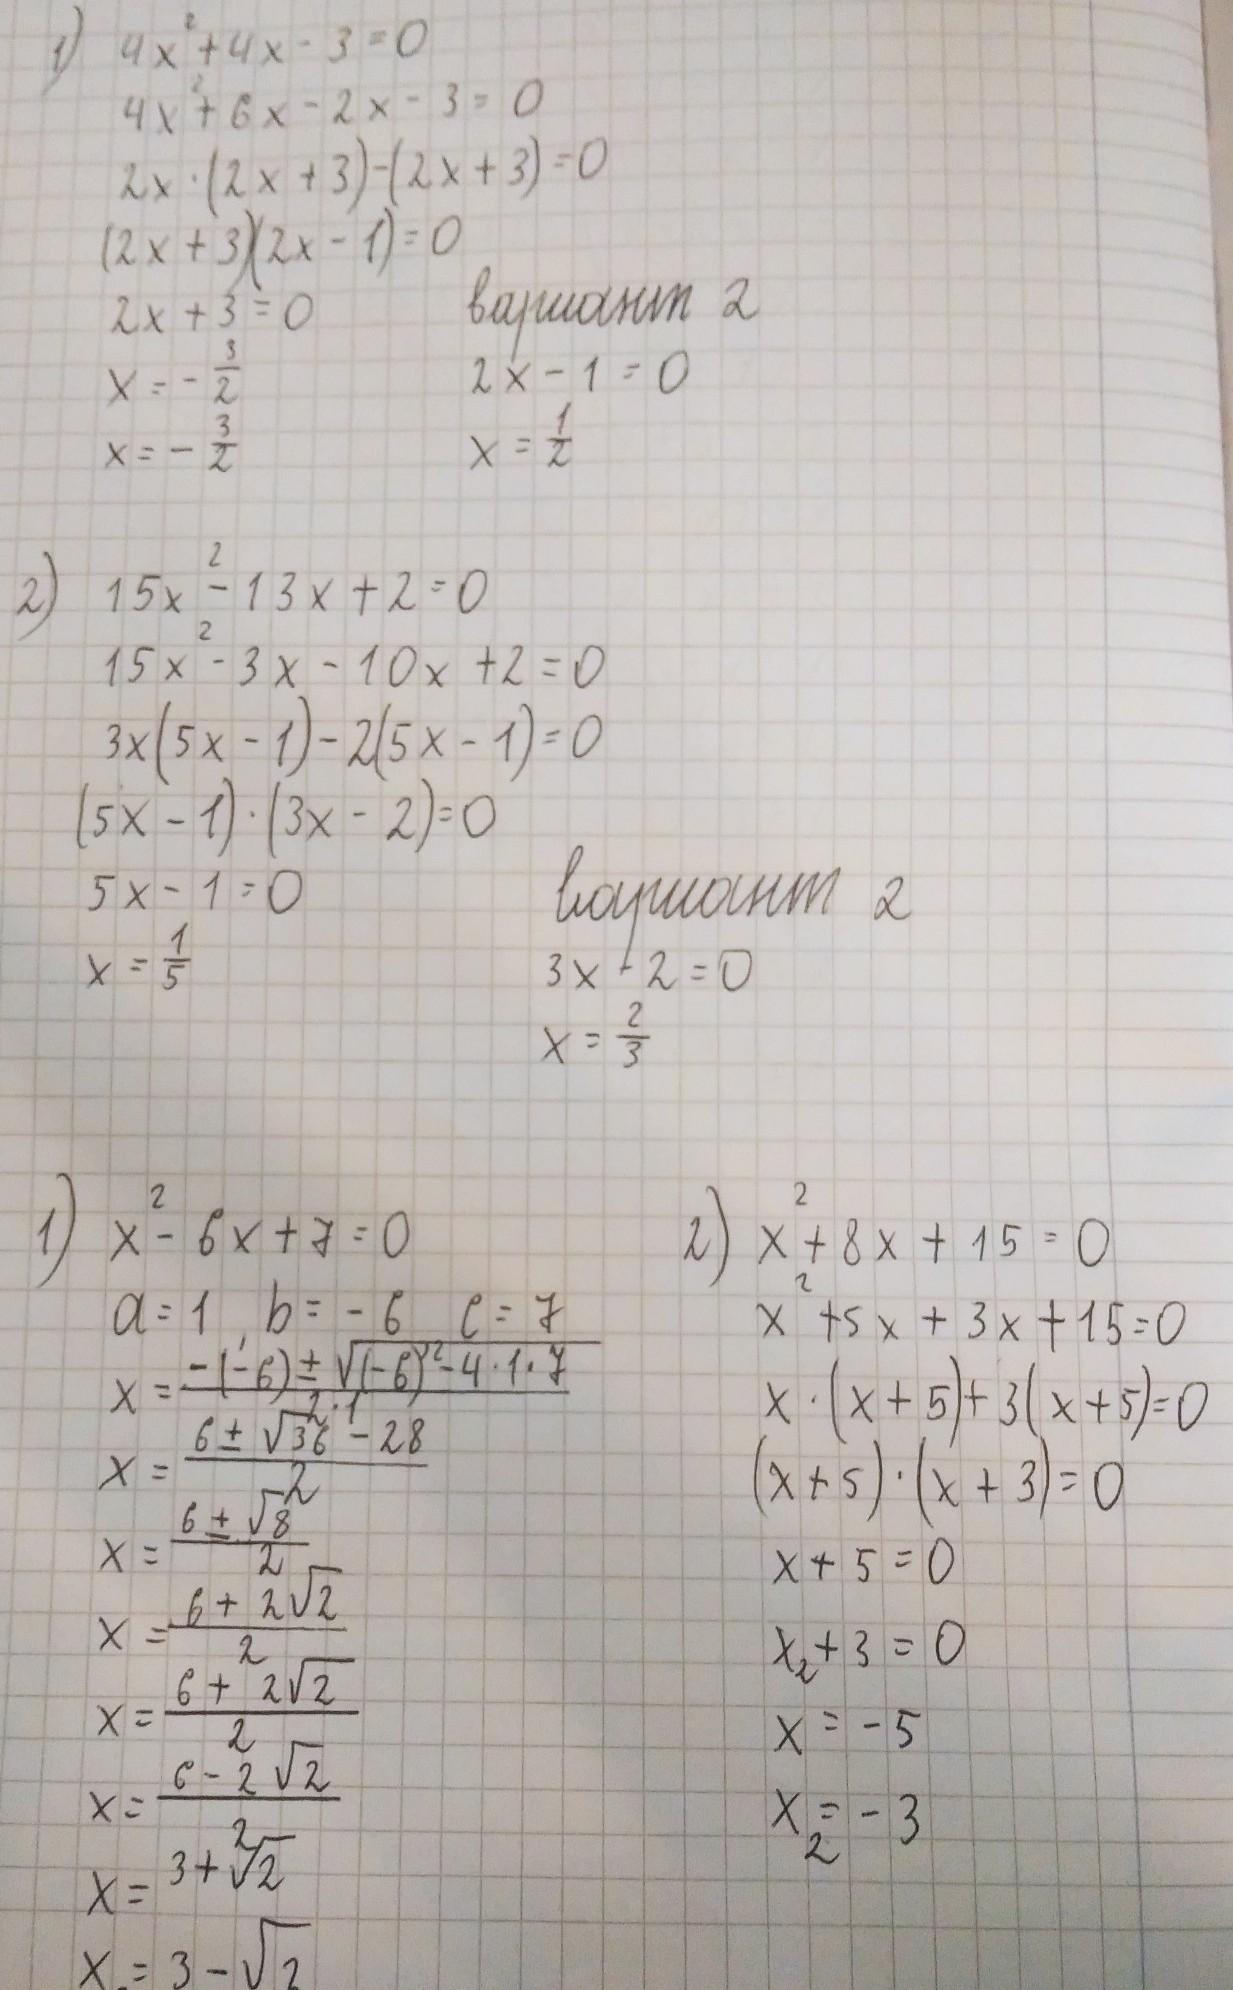 1) 4x² + 4x - 3 = 0
4x² + 6x - 2x - 3 = 0
2x · (2x + 3) - (2x + 3) = 0
(2x + 3)(2x - 1) = 0
2x + 3 = 0
x = - 3/2
x = - 3/2
вариант 2
2x - 1 = 0
x = 1/2
2) 15x² - 13x + 2 = 0
15x² - 3x - 10x + 2 = 0
3x(5x - 1) - 2(5x - 1) = 0
(5x - 1) · (3x - 2) = 0
5x - 1 = 0
x = 1/5
вариант 2
3x - 2 = 0
x = 2/3
1) x² - 6x + 7 = 0
a = 1, b = - 6 c = 7
x = (-(-6) ± √((-6)² - 4 · 1 · 7))/(2 · 1)
x = (6 ± √36 - 28)/2
x = (6 ± √8)/2
x = (6 + 2√2)/2
x = (6 + 2√2)/2
x = (6 - 2√2)/2
x = 3 + √2
x = 3 - √2
2) x² + 8x + 15 = 0
x² + 5x + 3x + 15 = 0
x · (x + 5) + 3(x + 5) = 0
(x + 5) · (x + 3) = 0
x + 5 = 0
x₂ + 3 = 0
x = - 5
x₂ = - 3